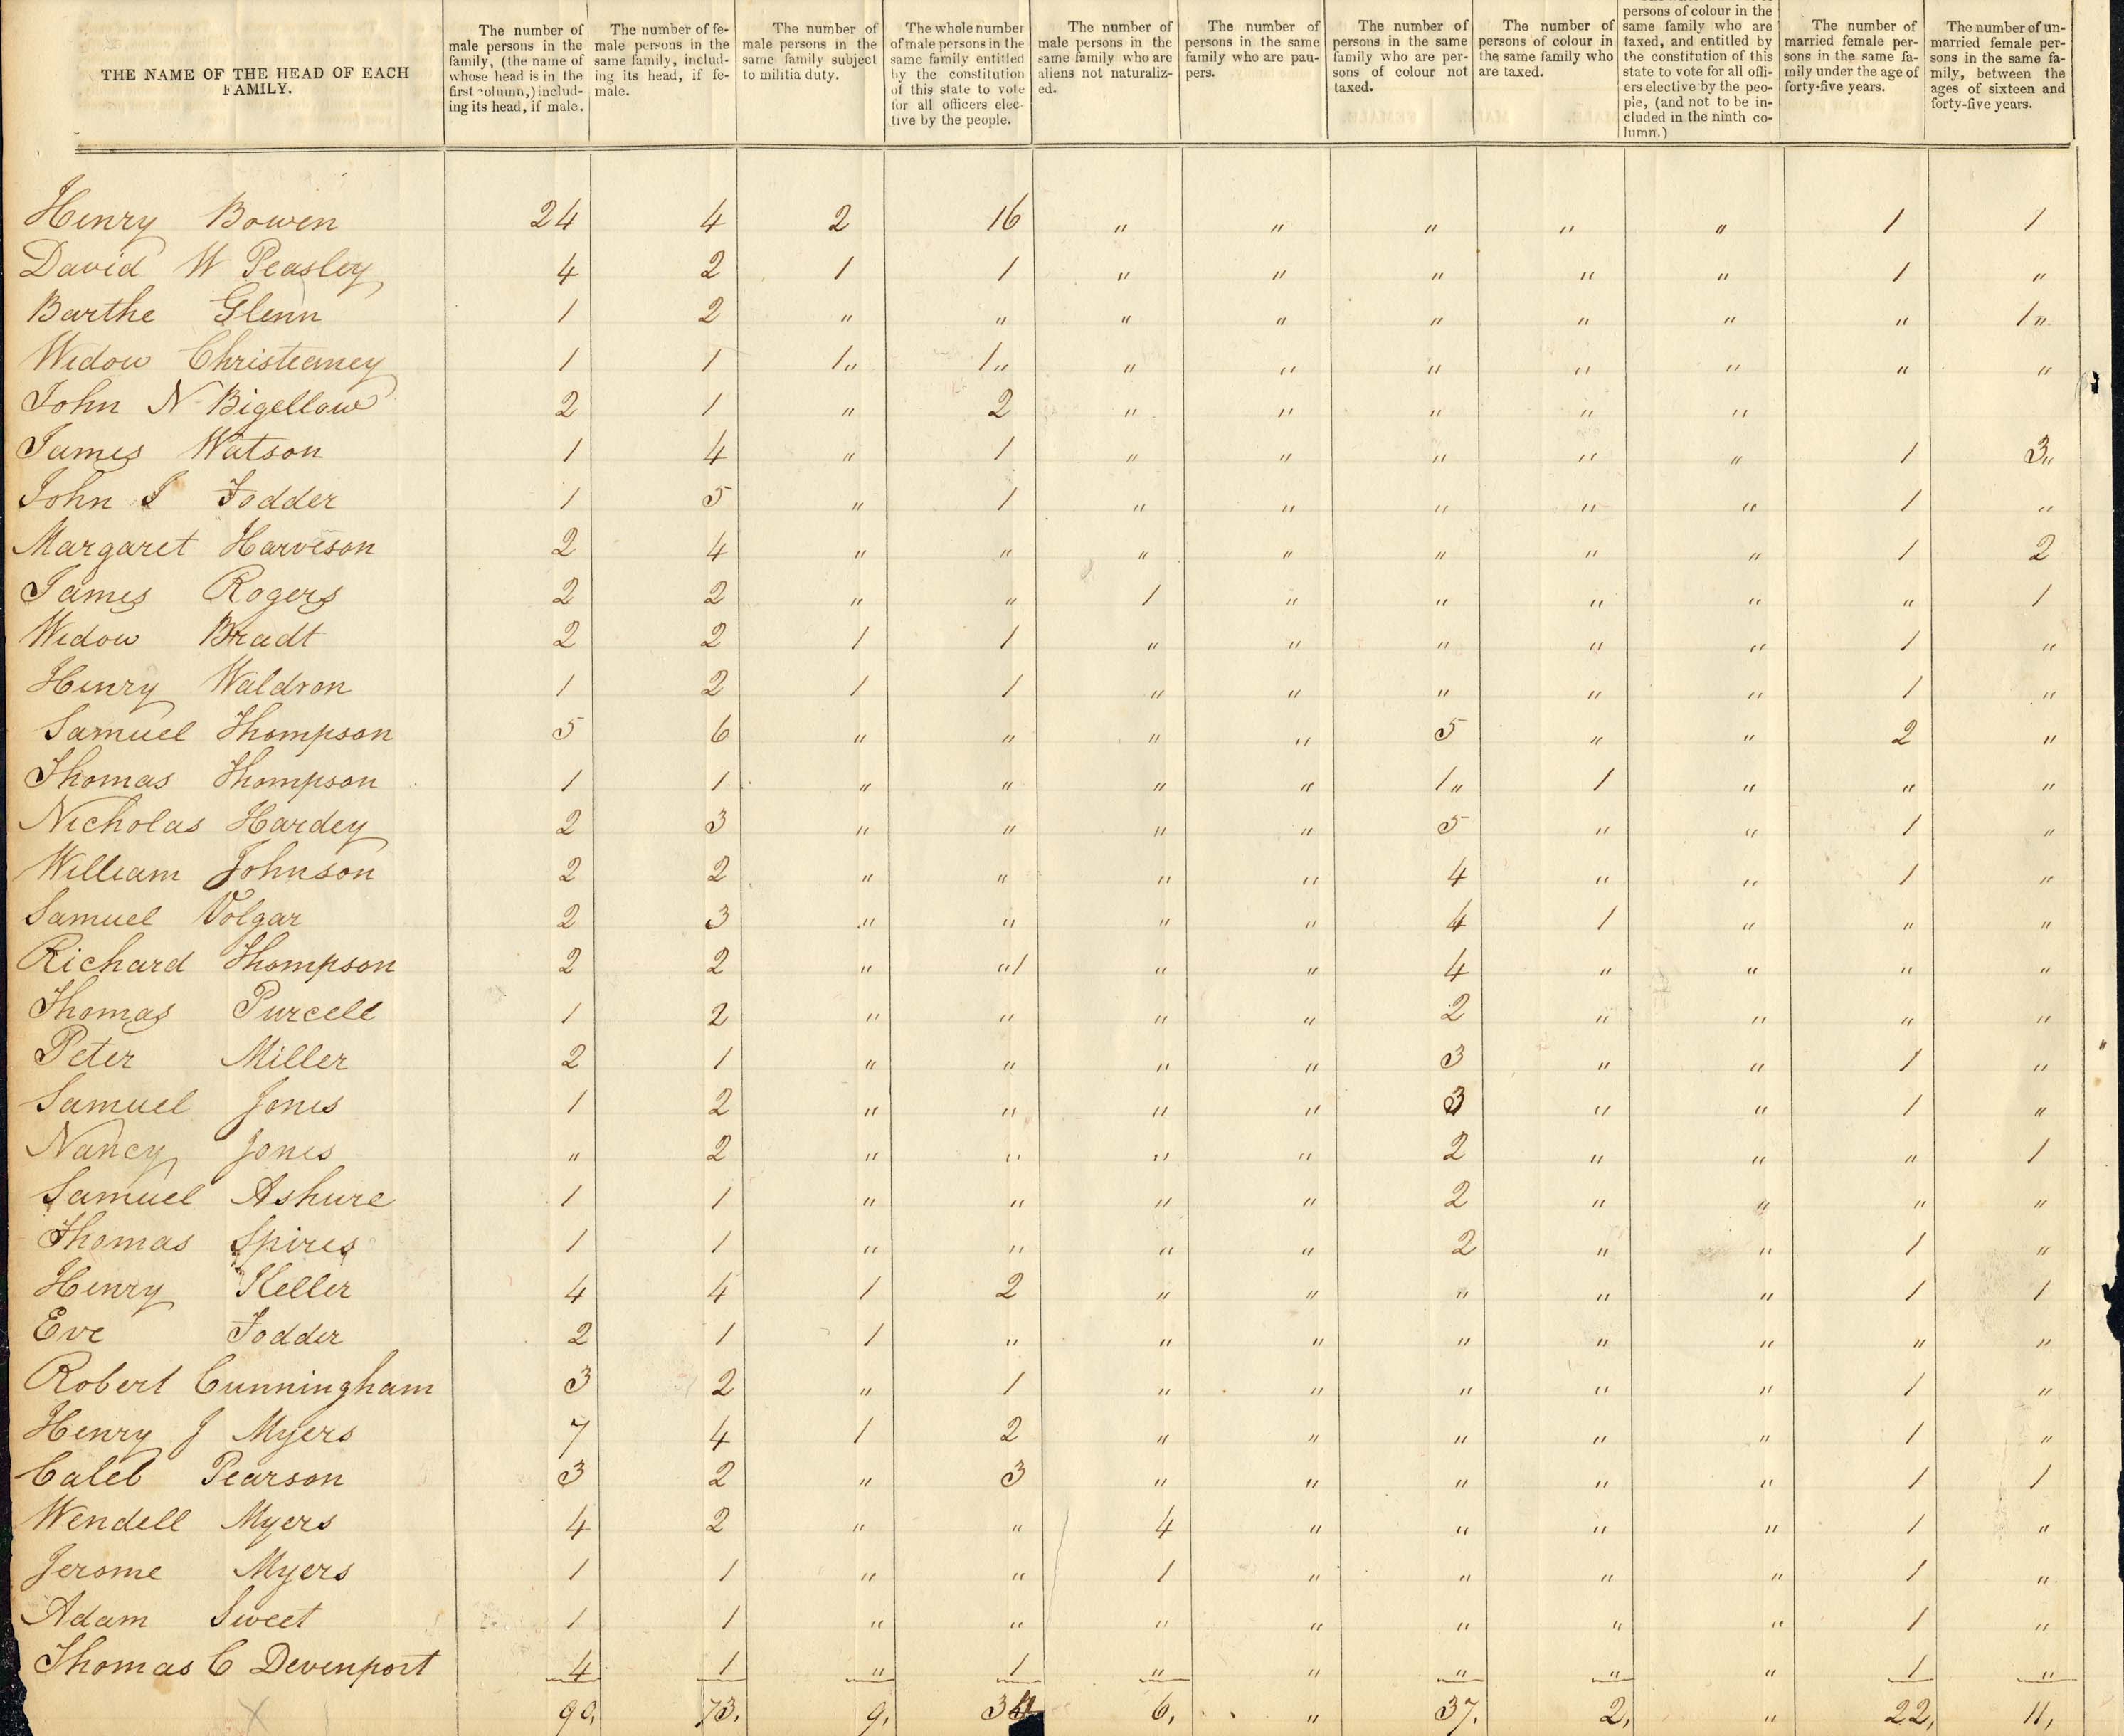 THE NAME OF THE HEAD OF EACH FAMILY.
The number of male persons in the family, (the name of whose head is in the first column,) including its head, if male.
The number of female persons in the same family, including its head, if female.
The number of male persons in the same family subject to militia duty.
The whole number of male persons in the same family entitled by the constitution of this state to vote for all officers elective by the people.
The number of male persons in the same family who are aliens not naturalized.
The number of persons in the same family who are paupers.
The number of persons in the same family who are persons of colour not taxed.
The number of persons of colour in the same family who are taxed.
persons of colour in the same family who are taxed, and entitled by the constitution of this state to vote for all officers elective by the people, (and not to be included in the ninth column.)
The number of married female persons in the same family under the age of forty-five years.
The number of unmarried female persons in the same family, between the ages of sixteen and forty-five years.
Henry Bowen 24 4 2 16 " " " " " 1 1
David W Peasley 4 2 1 1 " " " " " 1 "
Barthe Glenn 1 2 " " " " " " " " 1"
Widow Christeaney 1 1 1" 1" " " " " " " "
John N Bigellow 2 1 " 2 " " " " "
James Watson 1 4 " 1 " " " " " 1 3"
John J Fodder 1 5 " 1 " " " " " 1 "
Margaret Harveson 2 4 " " " " " " " 1 2
James Rogers 2 2 " " 1 " " " " " 1
Widow Bradt 2 2 1 1 " " " " " 1 "
Henry Waldron 1 2 1 1 " " " " " 1 "
Samuel Thompson 5 6 " " " " 5 " " 2 "
Thomas Thompson 1 1 " " " " 1" 1 " " "
Nicholas Hardey 2 3 " " " " 5 " " 1 "
William Johnson 2 2 " " " " 4 " " 1 "
Samuel Volgar 2 3 " " " " 4 1 " " "
Richard Thompson 2 2 " "1 " " 4 " " " "
Thomas Purcell 1 2 " " " " 2 " " " "
Peter Miller 2 1 " " " " 3 " " 1 "
Samuel Jones 1 2 " " " " 3 " " 1 "
Nancy Jones " 2 " " " " 2 " " " 1
Samuel Ashure 1 1 " " " " 2 " " " "
Thomas Spires 1 1 " " " " 2 " " 1 "
Henry Keller 4 4 1 2 " " " " " 1 1
Eve Fodder 2 1 1 " " " " " " " "
Robert Cunningham 3 2 " 1 " " " " " 1 "
Henry J Myers 7 4 1 2 " " " " " 1 "
Caleb Pearson 3 2 " 3 " " " " " 1 1
Wendell Myers 4 2 " " 4 " " " " 1 "
Jerome Myers 1 1 " " 1 " " " " 1 "
Adam Sweet 1 1 " " " " " " " 1 "
Thomas C Devenport 4 1 " 1 " " " " " 1 "
90, 73. 9, 6, " 37. 2, " 22, 11,